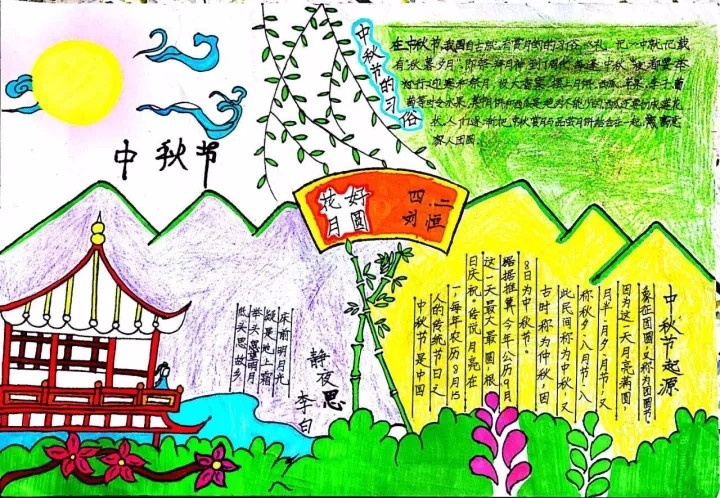 中秋节
中秋节的习俗
在中秋节,我国自古就有赏月的习俗,《礼记》中就记载
有“秋暮夕月”,即祭拜月神,到了周代,每逢中秋夜都要举
行迎寒和祭月。设大香案,摆上月饼、西瓜、苹果、李子、葡
萄等时令水果,其中月饼和西瓜是绝对不能少的,西瓜还要切成莲花
状。人们逐渐把中秋赏月与品尝月饼结合在一起,寓意
家人团圆。
花好
月圆
四.二
刘恒
中秋节起源
中秋节是中国
人的传统节日又
一,每年农历8月15
日庆祝。传说月亮在
这一天最大最圆,很
据据推算今年公历9月
8日为中秋节。
古时称为仲秋,因
此民间称为中秋,又
称秋夕、八月节、八
月半、月夕、月节,又
因为这一天月亮满圆,
象征团圆,又称为团圆节。
静夜思
李白
床前明月光
疑是地上霜
举头望明月
低头思故乡